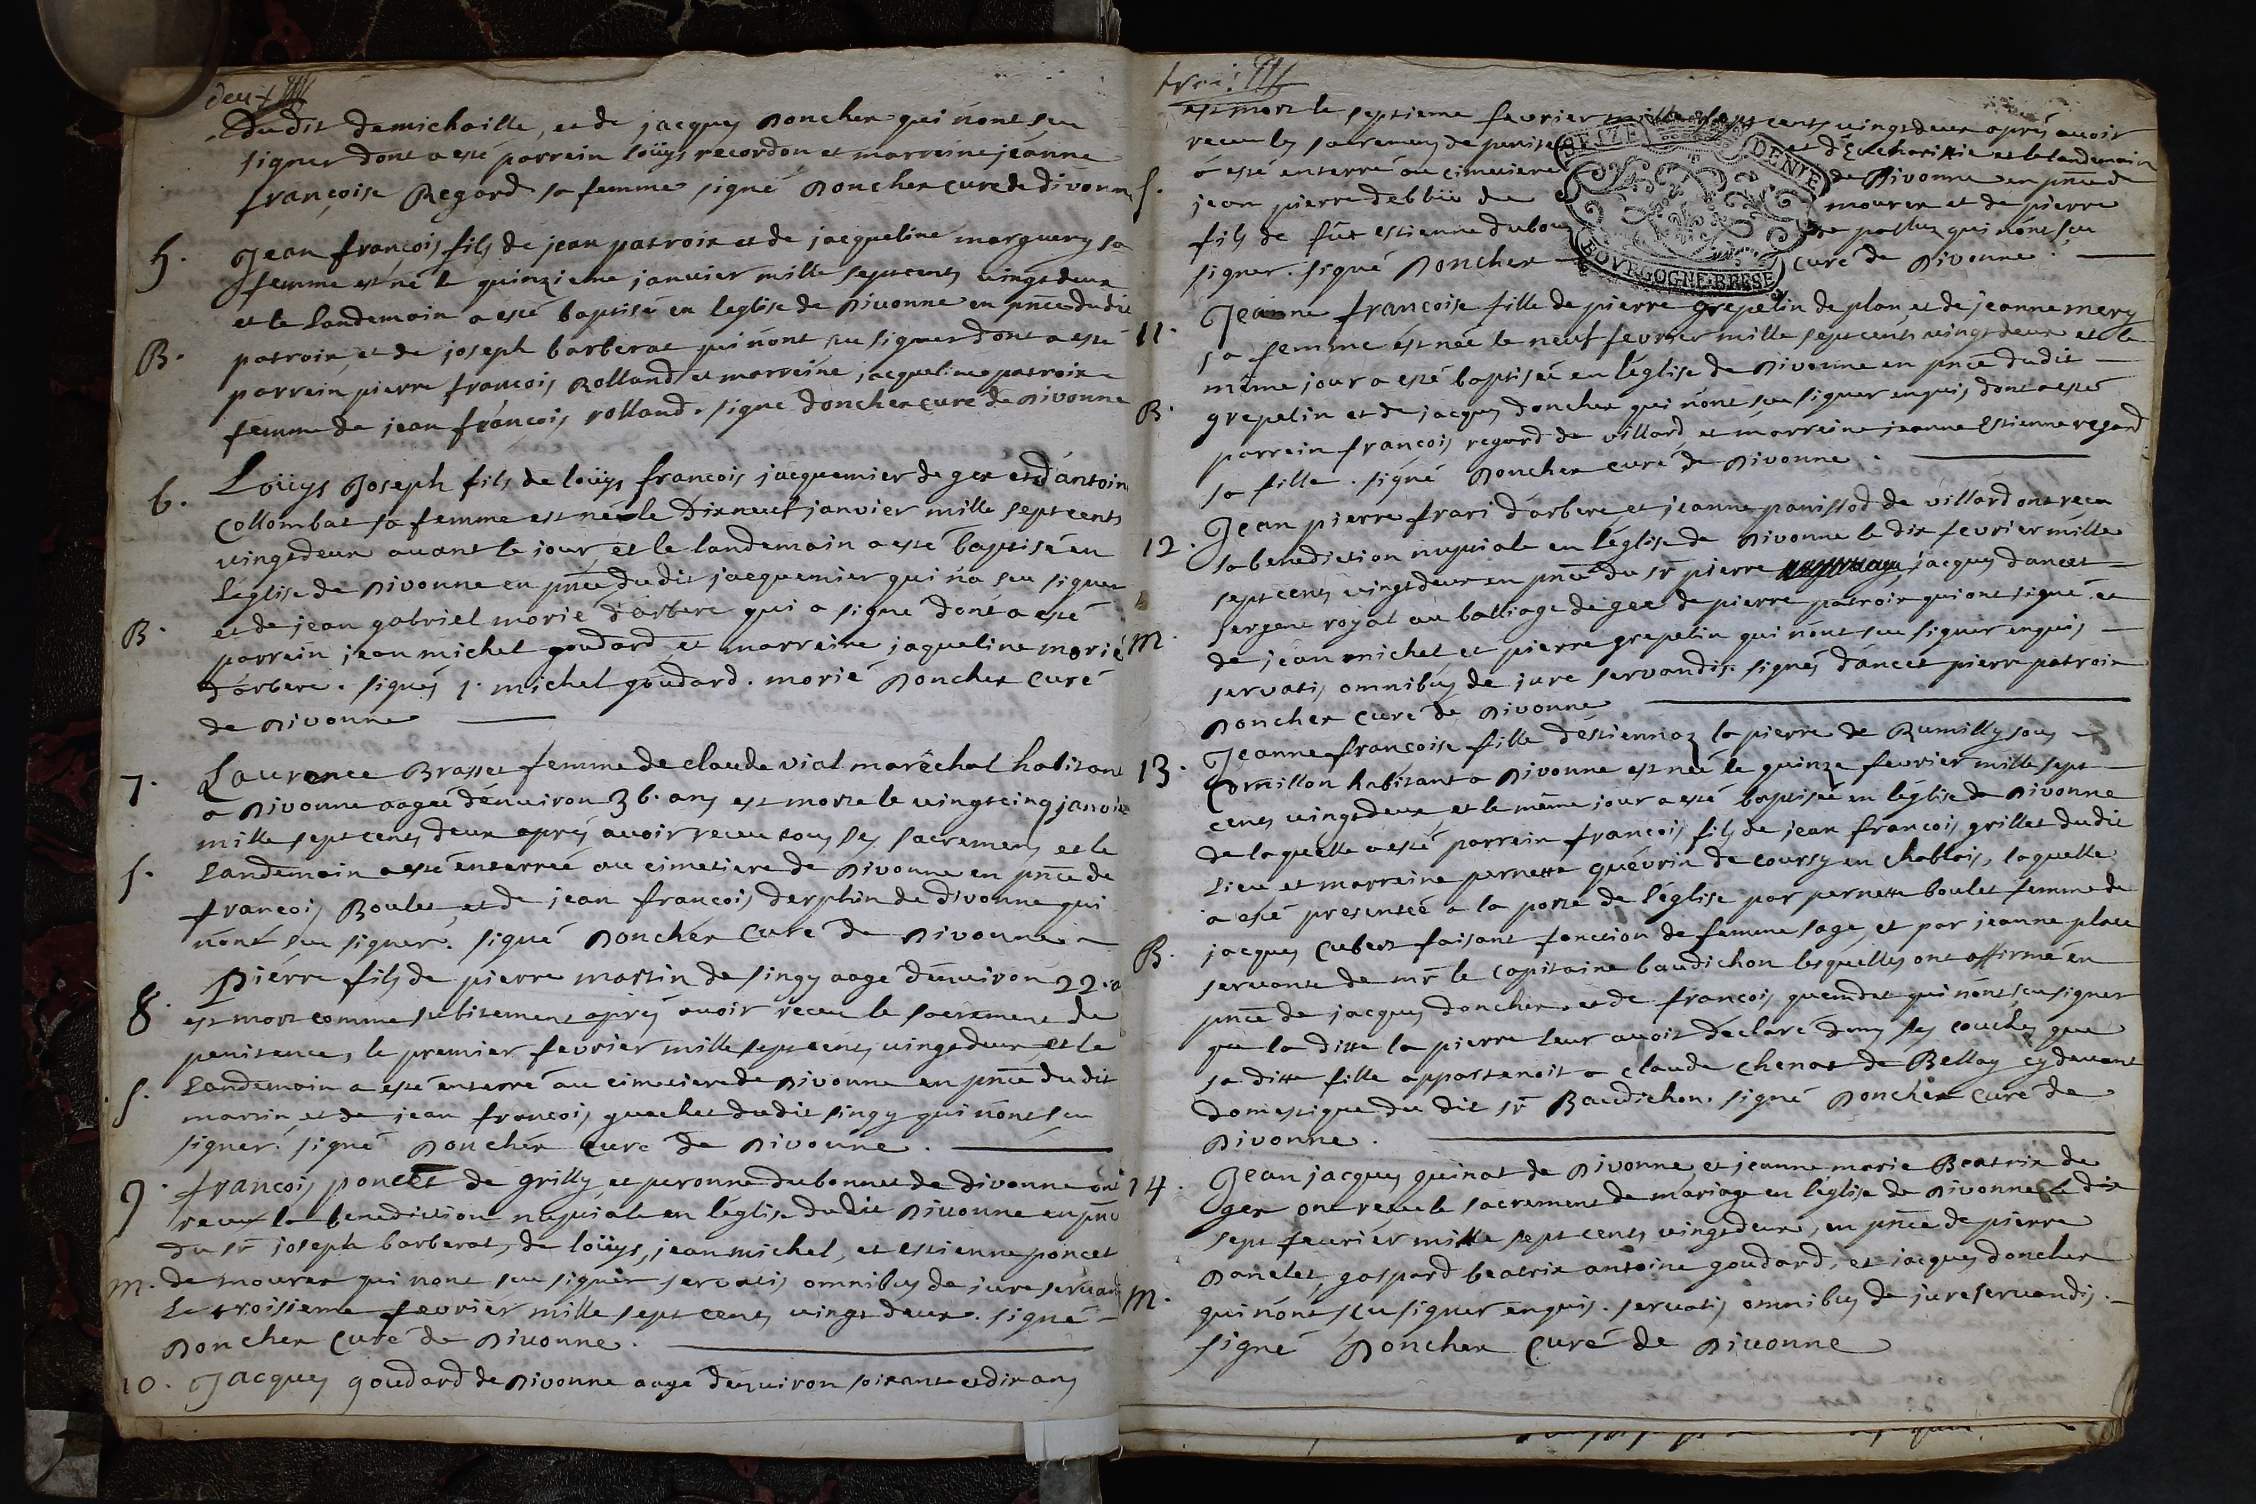 deux
dudit demichaille, et de jacques Doncher qui n'ont sceu
signer dont a esté parrein loüys recordon et marreine jeanne
françoise Regard sa femme signé Doncher curé de divonne
5. Jean françois fils de jean patroix et de jacqueline marguery sa
femme est né le quinzieme janvier mille septcents vingtdeux
et le landemain a esté baptisé en l'eglise de Divonne en pnce dudit
B. patroix et de joseph barberat qui n'ont sceu signer dont a esté
parrein pierre françois Rolland et marreine jacqueline patroix
femme de jean françois rolland. signé doncher curé de Divonne
6. Loüys Joseph fils de loüys françois jacquemier de gex et d'antoin
Collombat sa femme est né le dixneuf janvier mille septcents
vingtdeux avant le jour et le landemain a esté baptisé en
l'église de Divonne en pnce dudit jacquemier qui n'a sceu signer
B. et de jean gabriel morié d'arbere qui a signé dont a esté
parrein jean michel goudard et marreine jaqueline morié
d'arbere. signés j. michel goudard. morié Doncher Curé
de Divonne
7. Laurence Brasset femme de claude vial maréchal habitant
a Divonne aagée d'enuiron 36. ans est morte le vingtcinq janvie
mille septcents deux aprés avoir receu tous ses sacremens et le
S. landemain a esté enterrée au cimetiere de Divonne en pnce de
françois Boulet et de jean françois derphin de divonne qui
n'ont sceu signer. signé Doncher Curé de Divonne
8. Pierre fils de pierre martin de singy aagé d'enuiron 22. a
est mort comme subitement aprés avoir receu le sacrement de
penitence, le premier fevrier mille septcents vingtdeux et le
S. landemain a esté enterré au cimetiere de Divonne en pnce dudit
martin et de jean françois guachet dudit singy qui n'ont sceu
signer. signé Doncher Curé de Divonne.
9. françois poncet de grilly et peronne dubonnet de divonne ont
receu la benediction nuptiale en l'église dudit Divonne en pnce
du sr joseph barberat, de loüys, jean michel, et estienne poncet
M. de mourex qui n'ont sceu signer servatis omnibus de jure servand
le troisieme fevrier mille sept cents vingt deux. signé
Doncher Curé de Divonne.
10. Jacques goudard de Divonne aagé d'enuiron soixante et dix ans
trois
est mort le septieme fevrier mille sept cents vingtdeux aprés avoir
receu les sacremens de penite et d'Eucharistie et le landemain
S. a esté enterré au cimetiere de Divonne en pnce de
jean pierre debbié de mourex et de pierre
fils de fût estienne dubou qui n'ont sceu
signer. signé Doncher Curé de Divonne.
SEIZE DENIE
BOVRGOGNE.BRESSE
11. Jeanne françoise fille de pierre grepelin de plan et de jeanne mery
sa femme est née le neuf fevrier mille septcents vingtdeux et le
même jour a esté baptisée en l'église de Divonne en pnce dudit
B. grepelin et de jacques doncher qui n'ont sceu signer enquis dont a esté
parrein françois regard de villard et marreine jeanne Estienne regard
sa fille. signé Doncher curé de Divonne.
12. Jean pierre frari d'arbere et jeanne panissod de villard ont receu
la benediction nuptiale en l'église de Divonne le dix fevrier mille
septcents vingtdeux en pnce du sr pierre jacques dancet
sergent royal au balliage de gex de pierre patroix qui ont signé et
M. de jean michel et pierre grepelin qui n'ont sceu signer enquis
servatis omnibus de jure servandis. signés dancet pierre patroix
Doncher Curé de Divonne
13. Jeanne françoise fille d'estiennaz la pierre de Rumilly sous
Cornillon habitant a Divonne est née le quinze fevrier mille sept
cents vingtdeux et le même jour a esté baptisée en l'église de Divonne
de laquelle a esté parrein françois fils de jean françois grillet dudit
lieu et marreine pernette quevrin de coursy en Chablais, laquelle
a esté presentée a la porte de l'église par pernette boulet femme de
B. jacques Cubert faisant fonction de femme sage, et par jeanne place
servante de mr le Capitaine baudichon lesquelles ont affirmé en
pnce de jacques doncher et de françois quendet qui n'ont sceu signer
que la ditte la pierre leur avoit déclaré dans ses couches que
sa ditte fille appartenoit a claude Chenat de Bellay cy devant
domestique du dit sr Baudichon. signé Doncher Curé de
Divonne.
14. Jean jacques quinat de Divonne et jeanne marie Beatrix de
gex ont receu le sacrement de mariage en l'église de Divonne le dix
sept fevrier mille sept cents vingtdeux, en pnce de pierre
Danclet, gaspard beatrix antoine goudard, et jacques doncher
M. qui n'ont sceu signer enquis. servatis omnibus de jure servandis.
signé Doncher Curé de Divonne